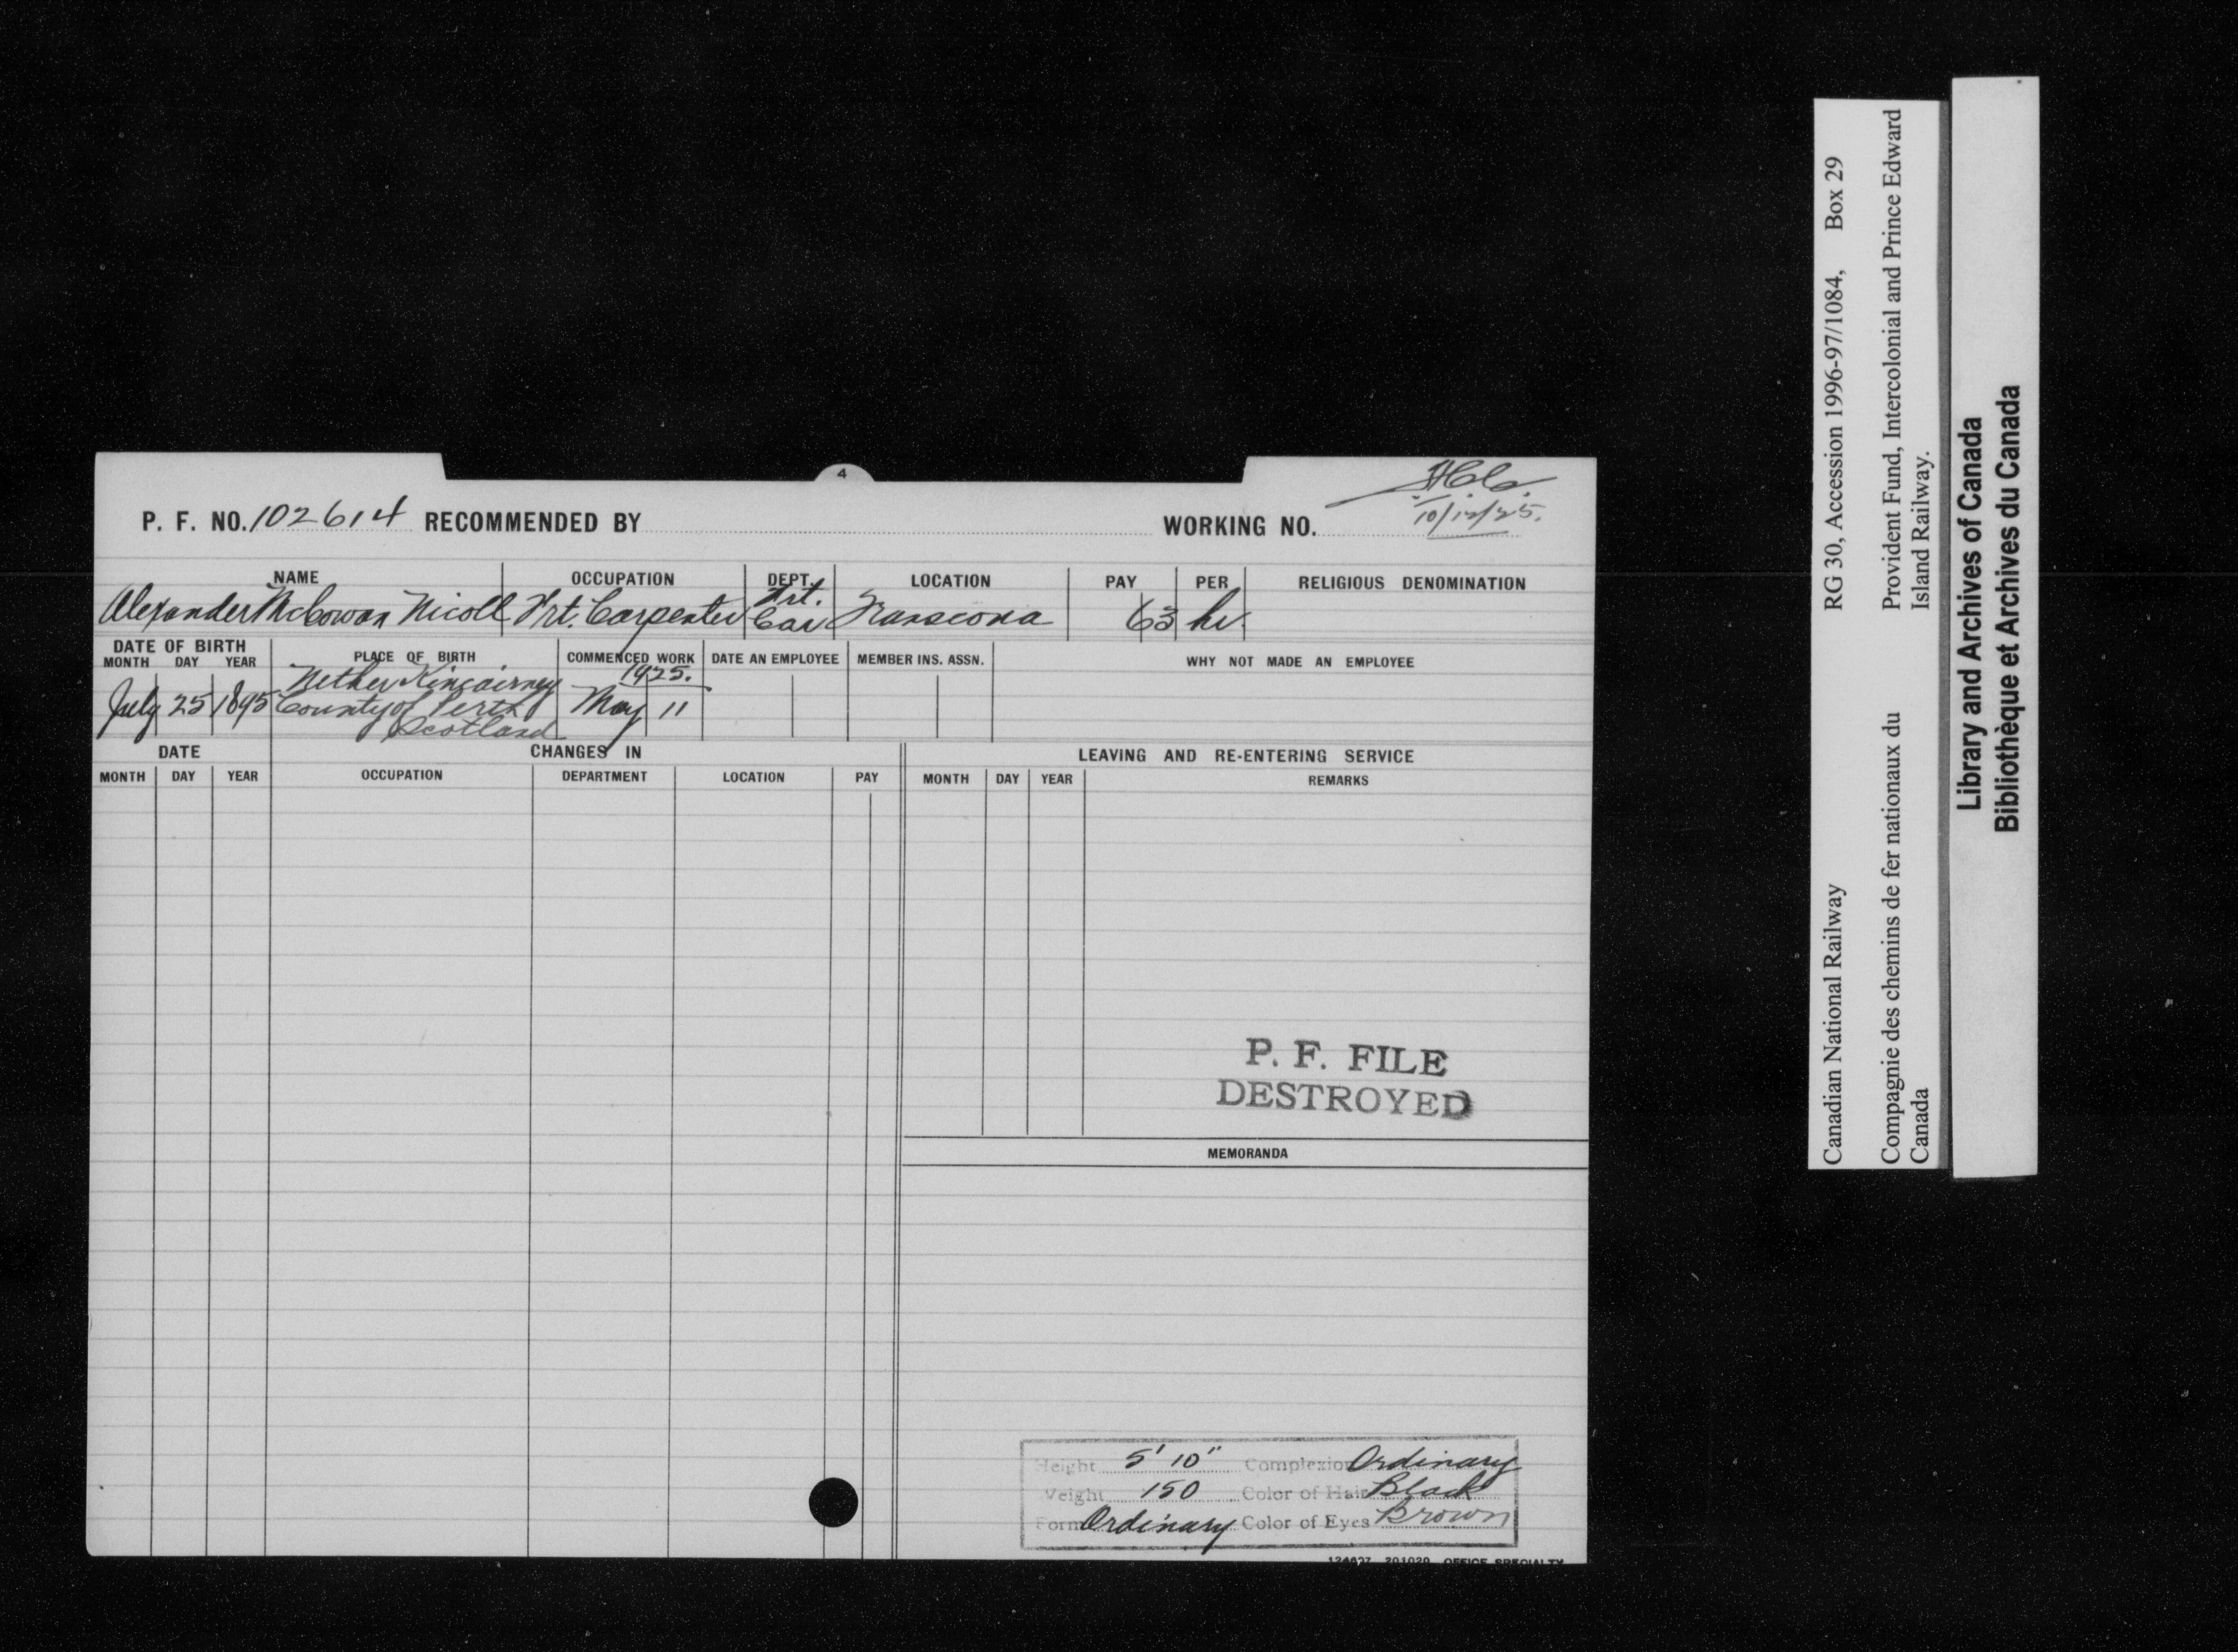 4
P. F. NO. 102614 RECOMMENDED BY WORKING NO.
10/12/25.
NAME OCCUPATION DEPT. LOCATION PAY PER RELIGIOUS DENOMINATION
Alexander McCowan Nicoll Frt. Carpenter Frt. Car Transcona 63 hr.
DATE OF BIRTH
MONTH DAY YEAR PLACE OF BIRTH COMMENCED WORK DATE AN EMPLOYEE MEMBER INS. ASSN. WHY NOT MADE AN EMPLOYEE
Nether Kincairney 1925.
July 25 1895 County of Perth May 11
Scotland
DATE CHANGES IN LEAVING AND RE-ENTERING SERVICE
MONTH DAY YEAR OCCUPATION DEPARTMENT LOCATION PAY MONTH DAY YEAR REMARKS
P. F. FILE
DESTROYED
MEMORANDA
Height 5' 10" Complexion Ordinary
Weight 150 Color of Hair Black
Form Ordinary Color of Eyes Brown
OFFICE SPECIALTY
Canadian National Railway RG 30, Accession 1996-97/1084, Box 29
Compagnie des chemins de fer nationaux du Canada
Provident Fund, Intercolonial and Prince Edward Island Railway.
Library and Archives of Canada
Bibliothèque et Archives du Canada